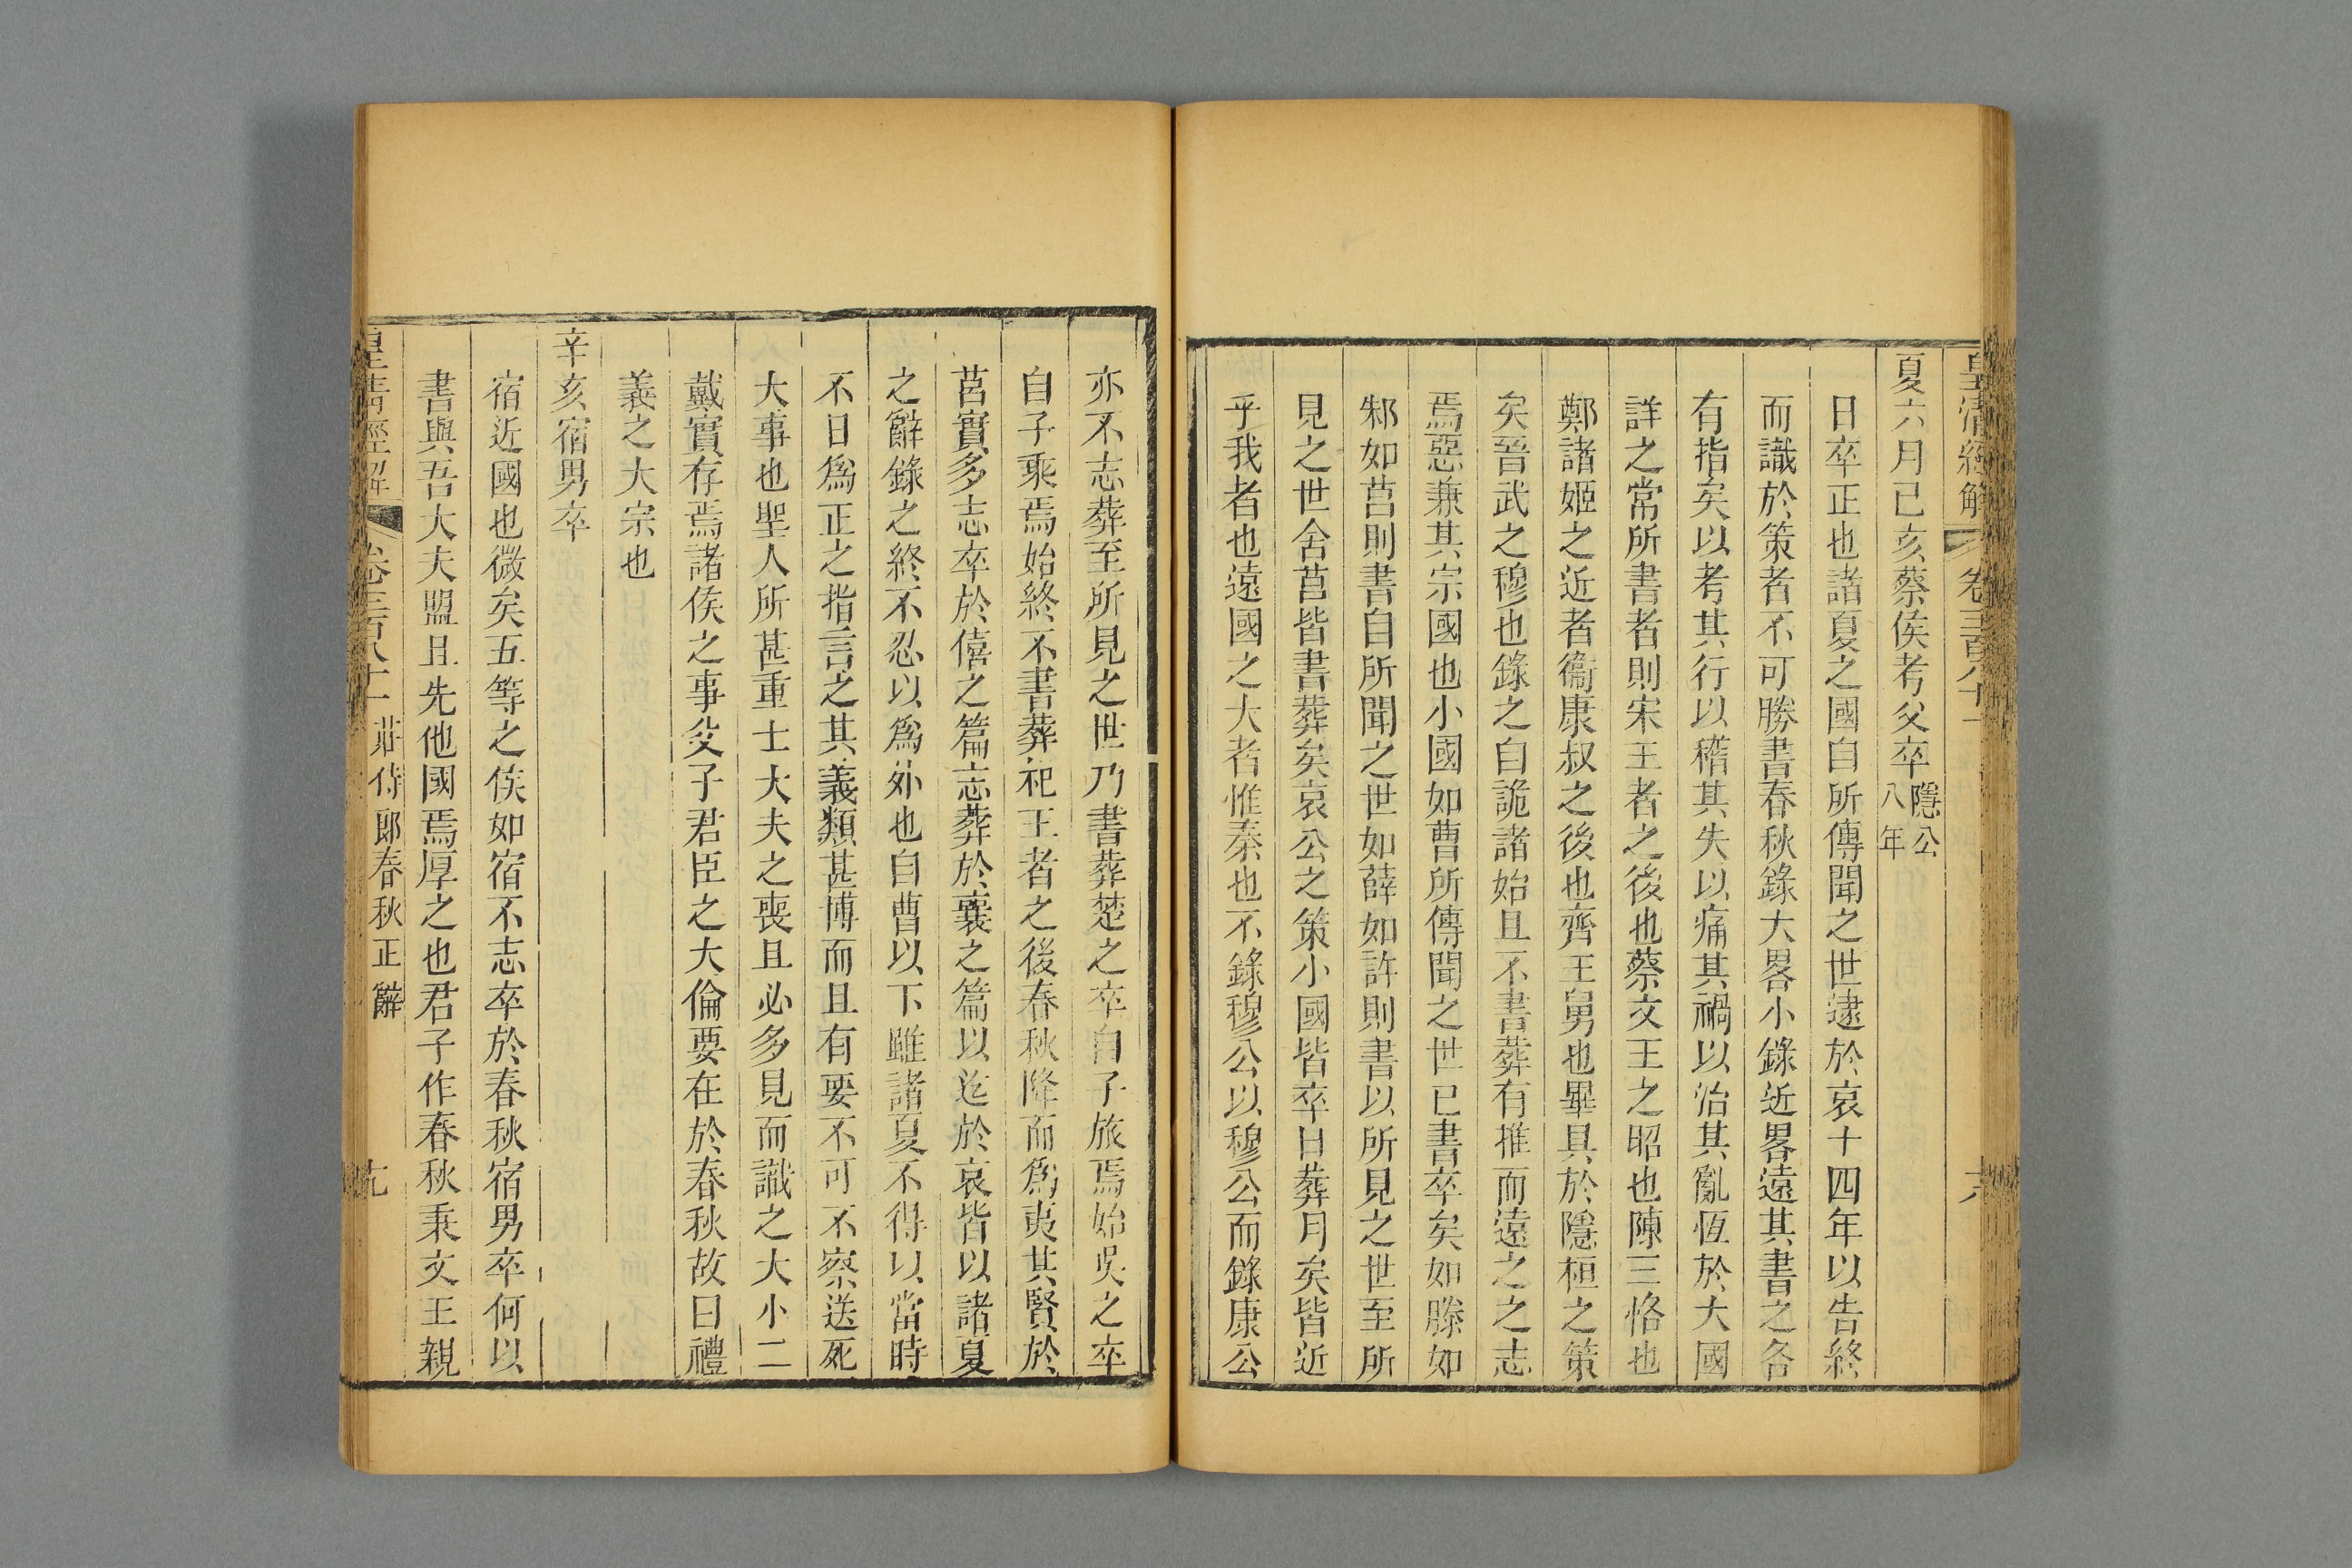 皇淸經解 卷三百八十一 六
夏六月己亥蔡侯考父卒隱公八年
日卒正也諸夏之國自所傳聞之世逮於哀十四年以告終
而識於策者不可勝書春秋錄大畧小錄近畧遠其書之各
有指矣以考其行以稽其失以痛其禍以治其亂恆於大國
詳之常所書者則宋王者之後也蔡文王之昭也陳三恪也
鄭諸姬之近者衞康叔之後也齊王舅也畢具於隱桓之策
矣晉武之穆也錄之自詭諸始且不書葬有推而遠之之志
焉惡兼其宗國也小國如曹所傳聞之世已書卒矣如滕如
邾如莒則書自所聞之世如薛如許則書以所見之世至所
見之世舍莒皆書葬矣哀公之策小國皆卒日葬月矣皆近
乎我者也遠國之大者惟秦也不錄穆公以穆公而錄康公
亦不志葬至所見之世乃書葬楚之卒自子旅焉始吳之卒
自子乘焉始終不書葬杞王者之後春秋降而爲夷其賢於
莒實多志卒於僖之篇志葬於襄之篇以迄於哀皆以諸夏
之辭錄之終不忍以爲外也自曹以下雖諸夏不得以當時
不日爲正之指言之其義類甚博而且有要不可不察送死
大事也聖人所甚重士大夫之喪且必多見而識之大小二
戴實存焉諸侯之事父子君臣之大倫要在於春秋故曰禮
義之大宗也
辛亥宿男卒
宿近國也微矣五等之侯如宿不志卒於春秋宿男卒何以
書與吾大夫盟且先他國焉厚之也君子作春秋秉文王親
皇淸經解 卷三百八十一 莊侍郎春秋正辭